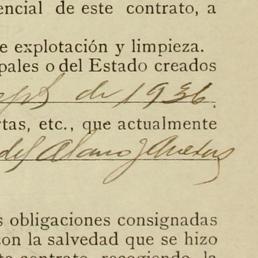 encial de este contrato, a
e explotación y limpieza.
pales o del Estado creados
de 1936.
rtas, etc., que actualmente
del Alamo
s obligaciones consignadas
con la salvedad que se hizo
te contrato, recogiendo la